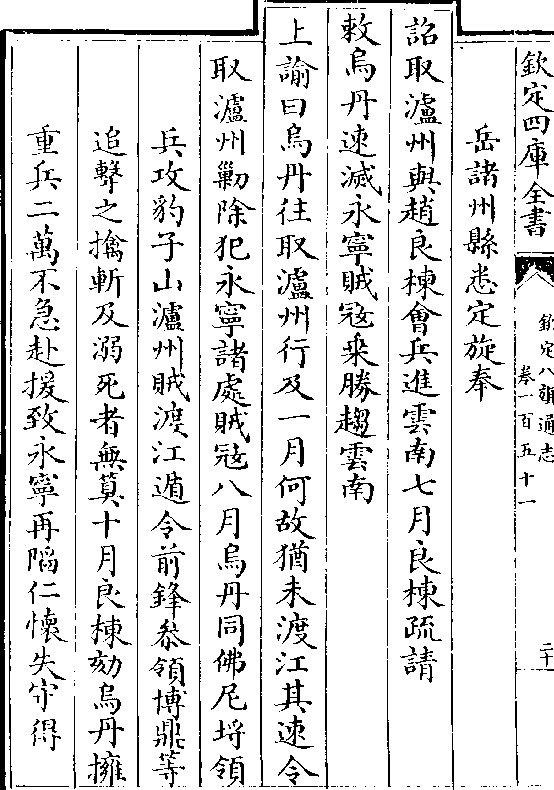 欽定四庫全書
欽定八旗通志
卷一百五十一
二十
岳諸州縣悉定旋奉
詔取瀘州與趙良棟會兵進雲南七月良棟疏請
敕烏丹速滅永寧賊寇乗勝趨雲南
上諭曰烏丹往取瀘州行及一月何故猶未渡江其速令
取瀘州勦除犯永寧諸處賊寇八月烏丹同佛尼埓領
兵攻豹子山瀘州賊渡江遁令前鋒叅領博鼎等
追擊之擒斬及溺死者無算十月良棟劾烏丹擁
重兵二萬不急赴援致永寧再陷仁懷失守得